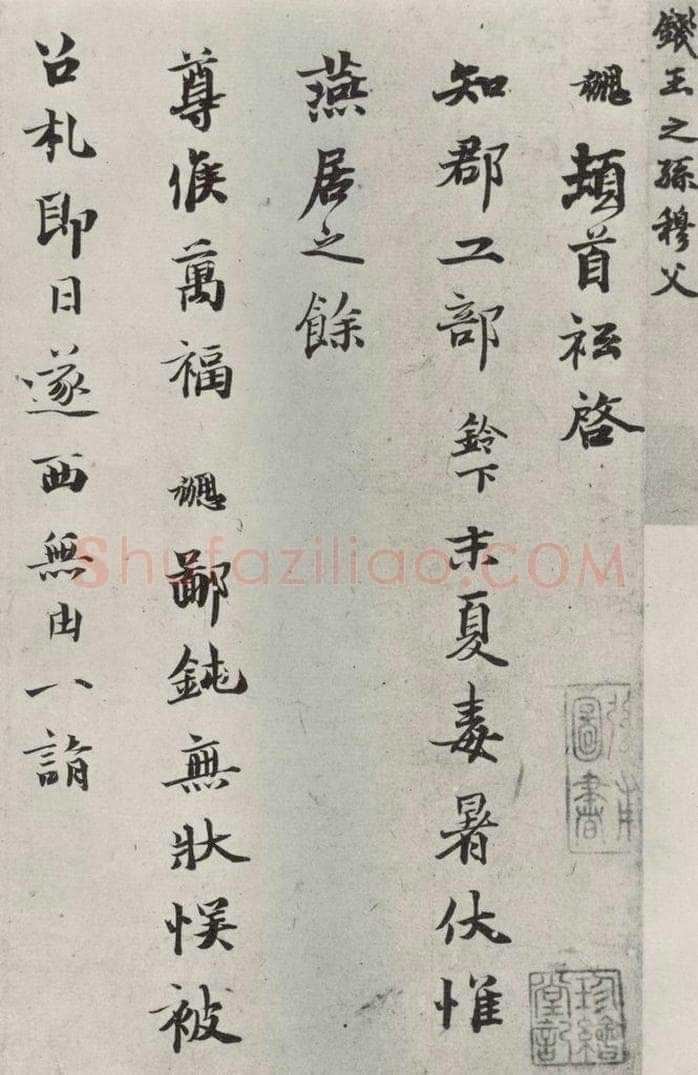 錢王之孫穆父
勰頓首祗啓
知郡工部鈴下末夏毒暑伏惟
燕居之餘
尊候萬福勰鄙鈍無狀悮被
召札即日遂西無由一詣
圖書
珍繪堂記
Shufaziliao.COM